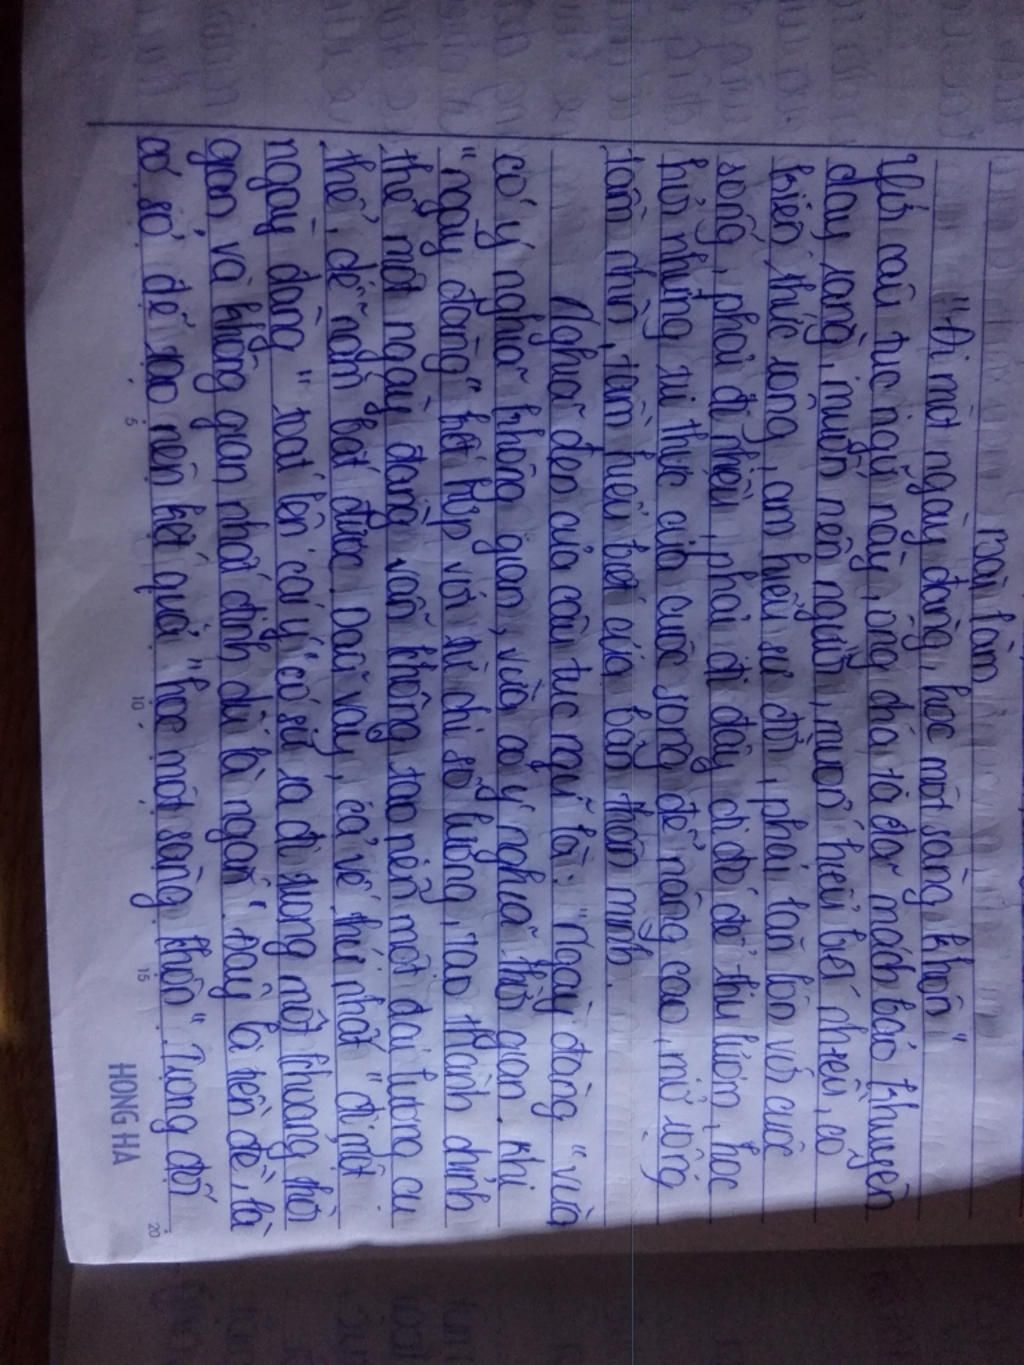 Bài làm
"Đi một ngày đàng, học một sàng khôn"
Với câu tục ngữ này, ông cha ta đã mách bảo khuyên
dạy rằng, muốn nên người, muốn hiểu biết nhiều, có
kiến thức rộng, am hiểu sự đời, phải lăn lộn với cuộc
sống, phải đi nhiều, phải đi đây đi đó để thu lượm, học
hỏi những tri thức của cuộc sống để nâng cao, mở rộng
tầm nhìn, tầm hiểu biết của bản thân mình.
Nghĩa đen của câu tục ngữ là: "Ngày đàng" vừa
có ý nghĩa không gian, vừa có ý nghĩa thời gian. Khi
"ngày đàng" kết hợp với từ chỉ số lượng, tạo thành chỉnh
thể một ngày đàng vẫn không tạo nên một đại lượng cụ
thể, dễ nắm bắt được. Dẫu vậy, cả về thứ nhất "đi một
ngày đàng" toát lên cái ý "có sự ra đi trong một khoảng thời
gian và không gian nhất định dù là ngắn". Đây là tiền đề, là
cơ sở để tạo nên kết quả "học một sàng khôn". Trong đối
HONG HA
5
10
15
20